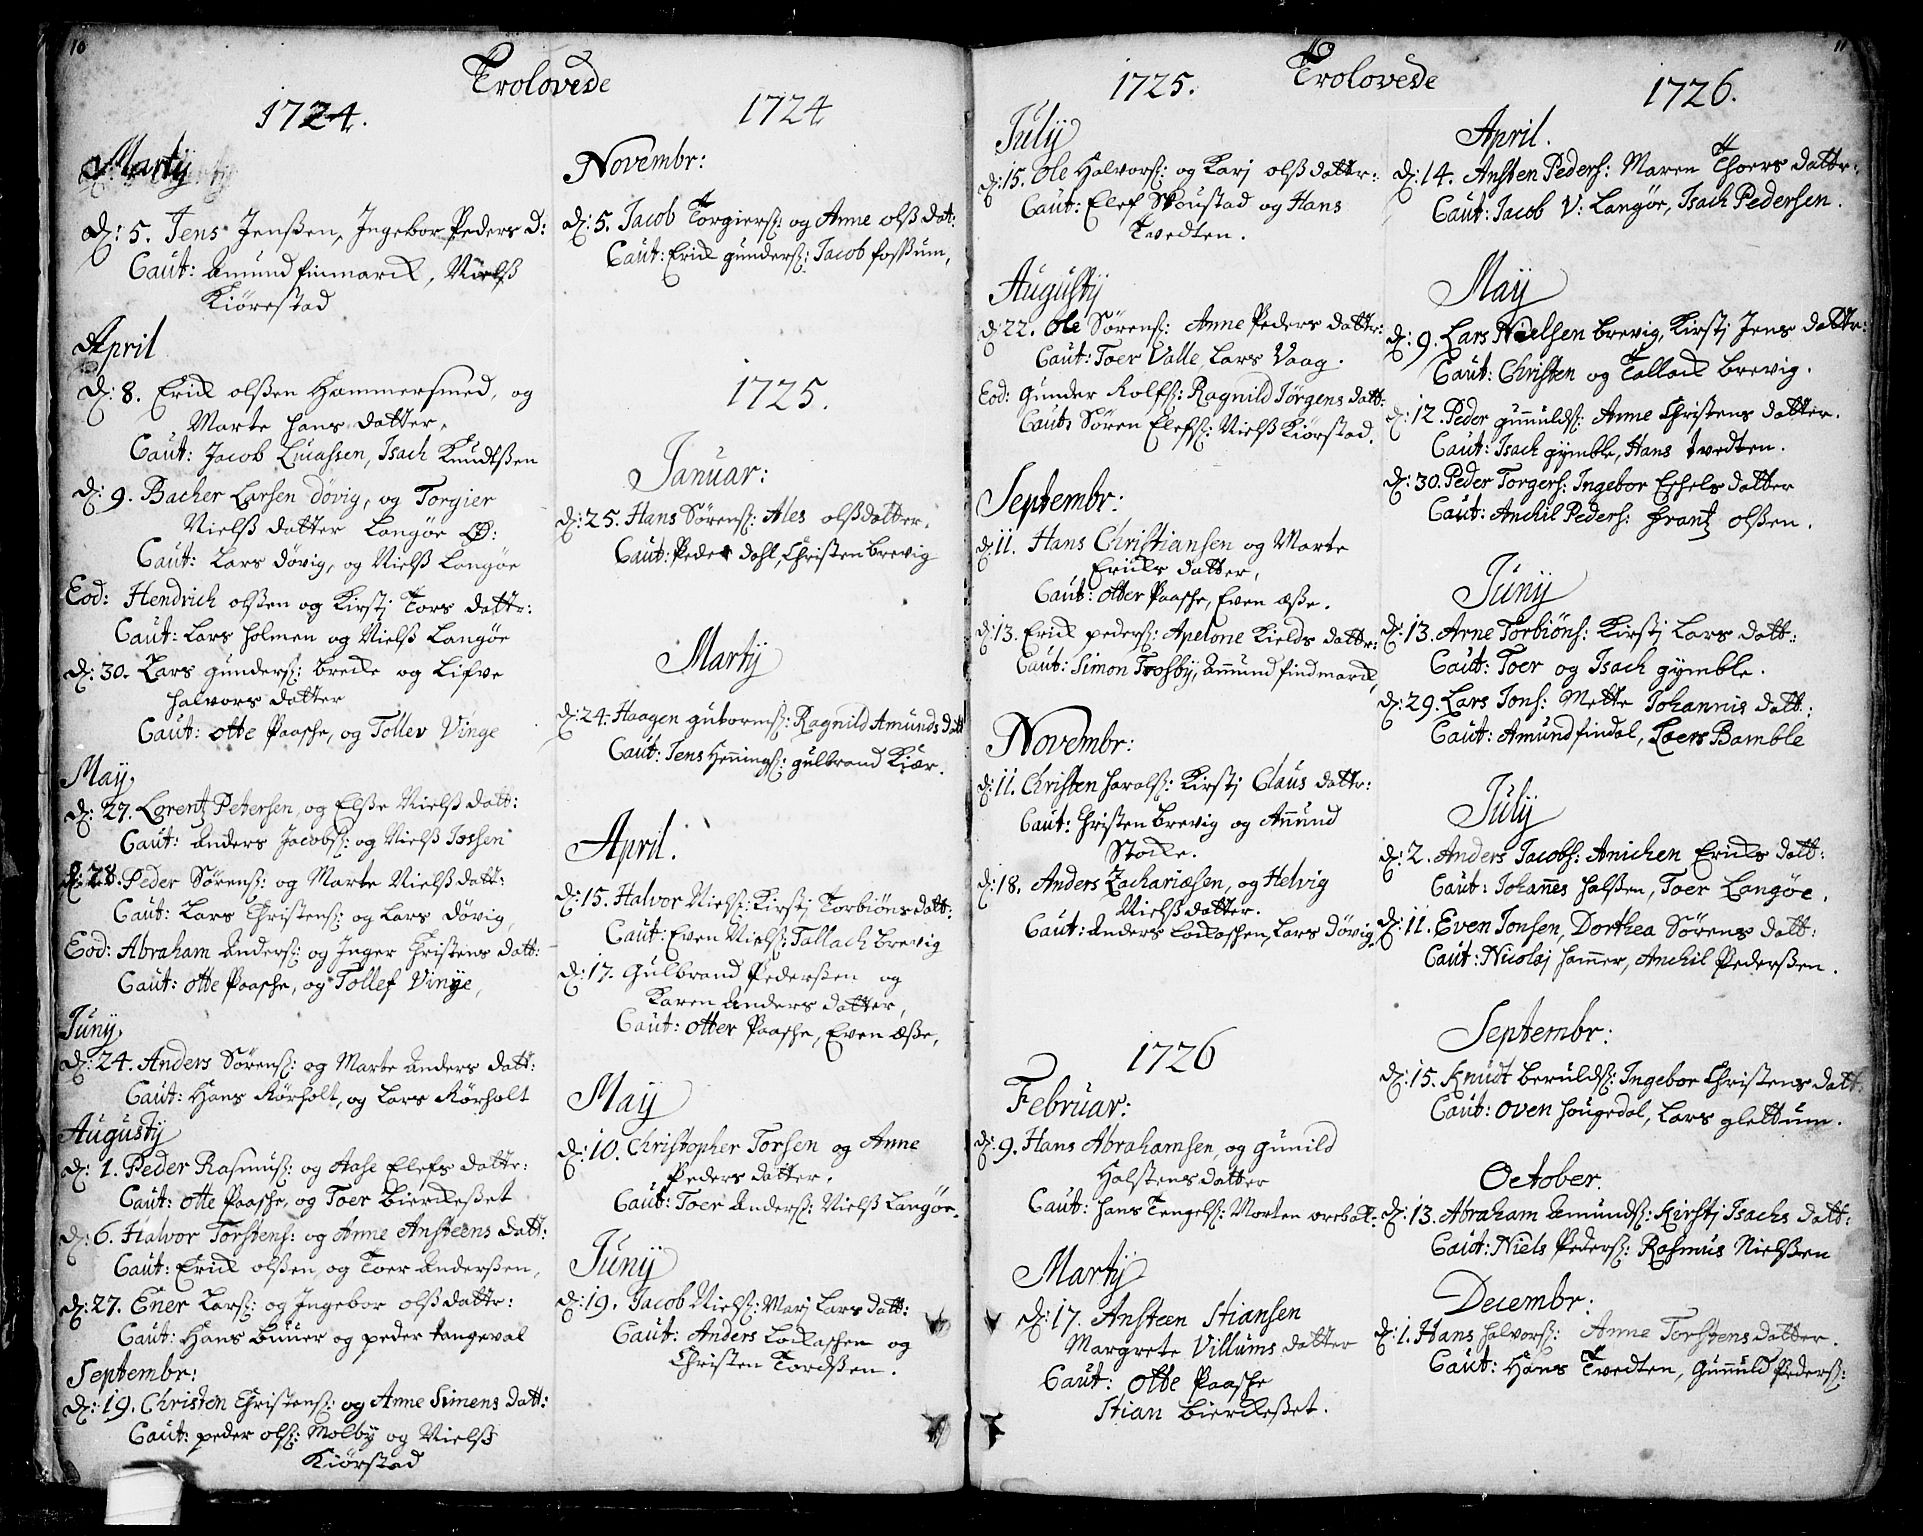 10
Trolovede
1724.
Martij
d: 5. Jens Jenßen, Ingebor Peders D:
Caut: Amund finmarck, Nielß
Kiørestad
April
d: 8. Erick olßen Hammersmed, og
Marte Hans datter,
Caut: Jacob Lucassen, Isach Knudtßen
d: 9. Bacher Larsen døvig, og Torgier
Nielß datter Langøe
Caut: Lars døvig, og Nielß Langøe
Eod: Hendrich olßen og Kirstj Tors dattr:
Caut: Lars Holmen og Nielß Langøe
d: 30. Lars gunders: brecke og Lifve
Halvors datter
Caut: otte Paasche, og Tollev Vinge
May
d: 27. Lorentz Petersen, og Elße Nielß datt:
Caut: Anders Jacobs: og Nielß Jossen
d: 28. Peder Sørens: og Marte Nielß datt:
Caut: Lars Christens: og Lars døvig,
Eod: Abraham Anders: og Inger Christens datt:
Caut: otte Paasche, og Tollef Vinge,
Juny
d: 24. Anders Sørens: og Marte Anders datt:
Caut: Hans Rørholt, og Lars Rørholt
Augustij
d: 1. Peder Rasmus: og Aase Elefs dattr:
Caut: otte Paasche, og Toer bierckeßet
d: 6. Halvor Torstens: og Anne Ansteens datt:
Caut: Erick olßen, og Toer Anderßen,
d: 27. Ener Lars: og Ingebor olß dattr:
Caut: Hans buuer og peder tangeval
Septembr:
d: 19. Christen Christens: og Anne Simens datt:
Caut: peder ols: Molby og Nielß
Kiørstad
1724
Novembr:
d: 5. Jacob Torgiers: og Anne olß dat:
Caut: Erick gunders: Jacob foßum,
1725.
Januar:
d: 25. Hans Sørens: Ales olßdatter.
Caut: Peder dahl, Christen brevig
Martij
d: 24. Haagen guttorms: Ragnild Amunds datt
Caut: Jens Hennings: gulbrand Kiær.
April.
d: 15. Halvor Niels: Kirstj Torbiøns datt:
Caut: Even Niels: Tallach brevig
d: 17. Gulbrand Pederßen og
Karen Anders datter,
Caut: otter Paasche, Even æße,
May
d: 10. Christopher Torsen og Anne
Peders datter,
Caut: Toer Anders: Nielß Langøe.
Juny
d: 19. Jacob Niels: Marj Lars datt:
Caut: Anders Lockaschen og
Christen Tordßen.
11
Trolovede
1725.
July
d: 15. Ole Halvors: og Karj olß dattr:
Caut: Elef Skoustad og Hans
Tvedten.
Augustij
d: 22. Ole Sørens: Anne Peders dattr:
Caut: Toer Valle, Lars Vaag.
Eod: Gunder Rolfs: Ragnild Jørgens datt:
Caut: Søren Elefs: Nielß Kiørstad.
Septembr:
d: 11. Hans Christiansen og Marte
Ericks datter,
Caut: otter Paasche, Even æße.
d: 13. Erick peders: Apelone Kields dattr:
Caut: Simon Trosby, Amund findmarck,
Novembr:
d: 11. Christen Harals: Kirstj Claus dattr:
Caut: Christen brevig og Amund
Stocke.
d: 18. Anders Zachariæsen, og Helvig
Nielß datter.
Caut: Anders Lockaschen, Lars Døvig
1726
Februar:
d: 9. Hans Abrahamsen, og gunild
Halstens datter
Caut: Hans Tengels: Morten orebak:
Martij
d: 17. Ansteen Stiansen
Margrete Villums datter
Caut: Otte Paasche
Stian bierckeßet.
1726.
April.
d: 14. Ansten Peders: Maren Thoers dattr:
Caut: Jacob V: Langøe, Isach Pedersen.
May
d: 9. Lars Nielsen brevig, Kirstj Jens dattr:
Caut: Christen og Tallack brevig.
d: 12. Peder gunulds: Anne Christens datter.
Caut: Isach gymble, Hans tvedten.
d: 30. Peder Torgers: Ingebor Eskels datter
Caut: Anckil Peders: frantz olßen.
Juny
d: 13. Arne Torbiøns: Kirstj Lars datt:
Caut: Toer og Isach gymble.
d: 29. Lars Jons: Mette Johannis datt:
Caut: Amund findal, Loers Bamble
July
d: 2. Anders Jacobs: Anichen Ericks datt:
Caut: Johannes halßen, Toer Langøe.
d: 11. Even Jonsen, Dorthea Sørens datt:
Caut: Nicolaj hammer, Anckil Pederßen.
Septembr:
d: 15. Knudt berulds: Ingebor Christens datt:
Caut: oven hougedal, Lars glettum.
October.
d: 13. Abraham Amunds: Kirstj Isachs datt:
Caut: Niels Peders: Rasmus Nielßen
Decembr:
d: 1. Hans halvors: Anne Torstens datter.
Caut: Hans Tvedten, Gunuld Peders: